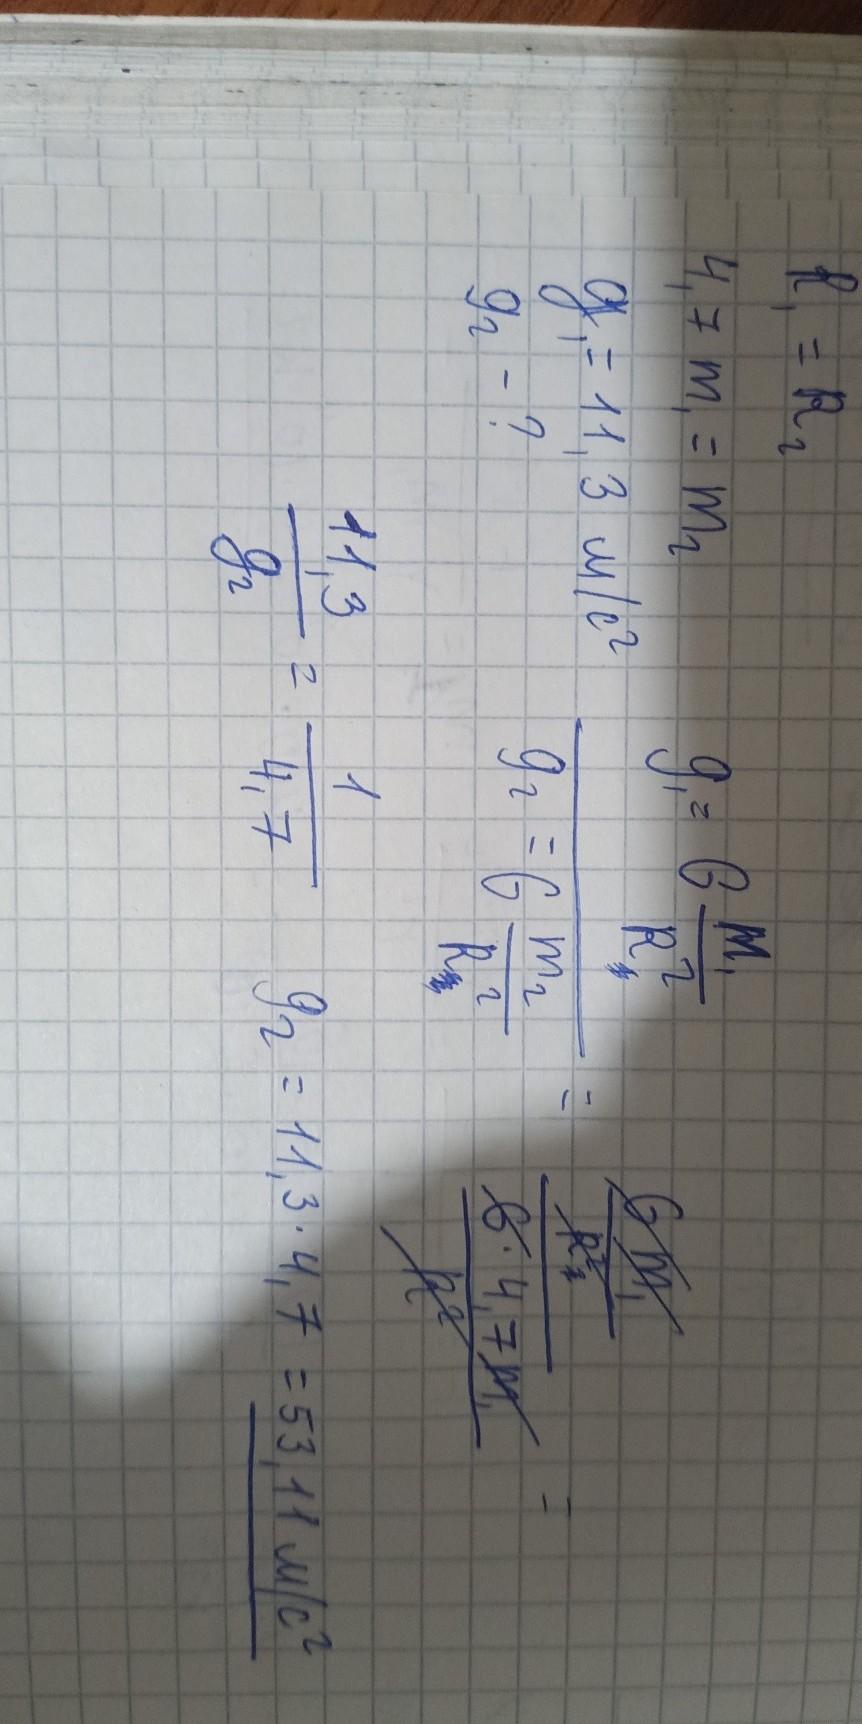 R₁ = R₂
4,7 m₁ = m₂
g₁ = 11,3 м/с²
g₂ - ?
g₁ = G m₁/R² / g₂ = G m₂/R² = G m₁/R² / G · 4,7 m₁/R² =
11,3/g₂ = 1/4,7 g₂ = 11,3 · 4,7 = 53,11 м/с²